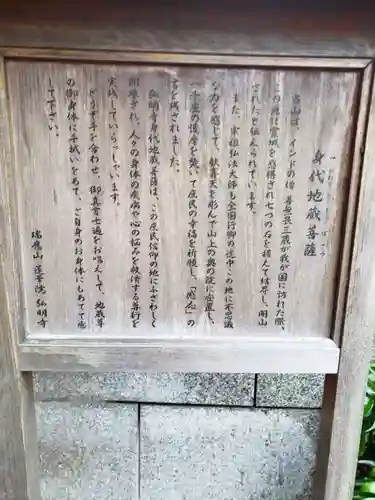 身代地蔵菩薩
当山は、インドの僧 善無畏三蔵が我が国に訪れた際、
この地に霊域を感得され七つの石を据えて結界し、開山
されたと伝えられています。
また、宗祖弘法大師も全国行脚の途中この地に不思議
な力を感じて、歓喜天を彫んで山上の奥の院に安置し、
一千座の護摩を焚いて庶民の幸福を祈願し、「感応」の
言を残されました。
弘明寺身代地蔵菩薩は、この庶民信仰の地にふさわしく
開眼され、人々の身体の疾病や心の悩みを救済する善行を
実践していらっしゃいます。
どうぞ手を合わせ、御真言七遍をお唱えして、地蔵尊
の御身体に手拭いをあて、ご自身のお身体にもあてて念
して下さい。
瑞應山 蓮華院 弘明寺